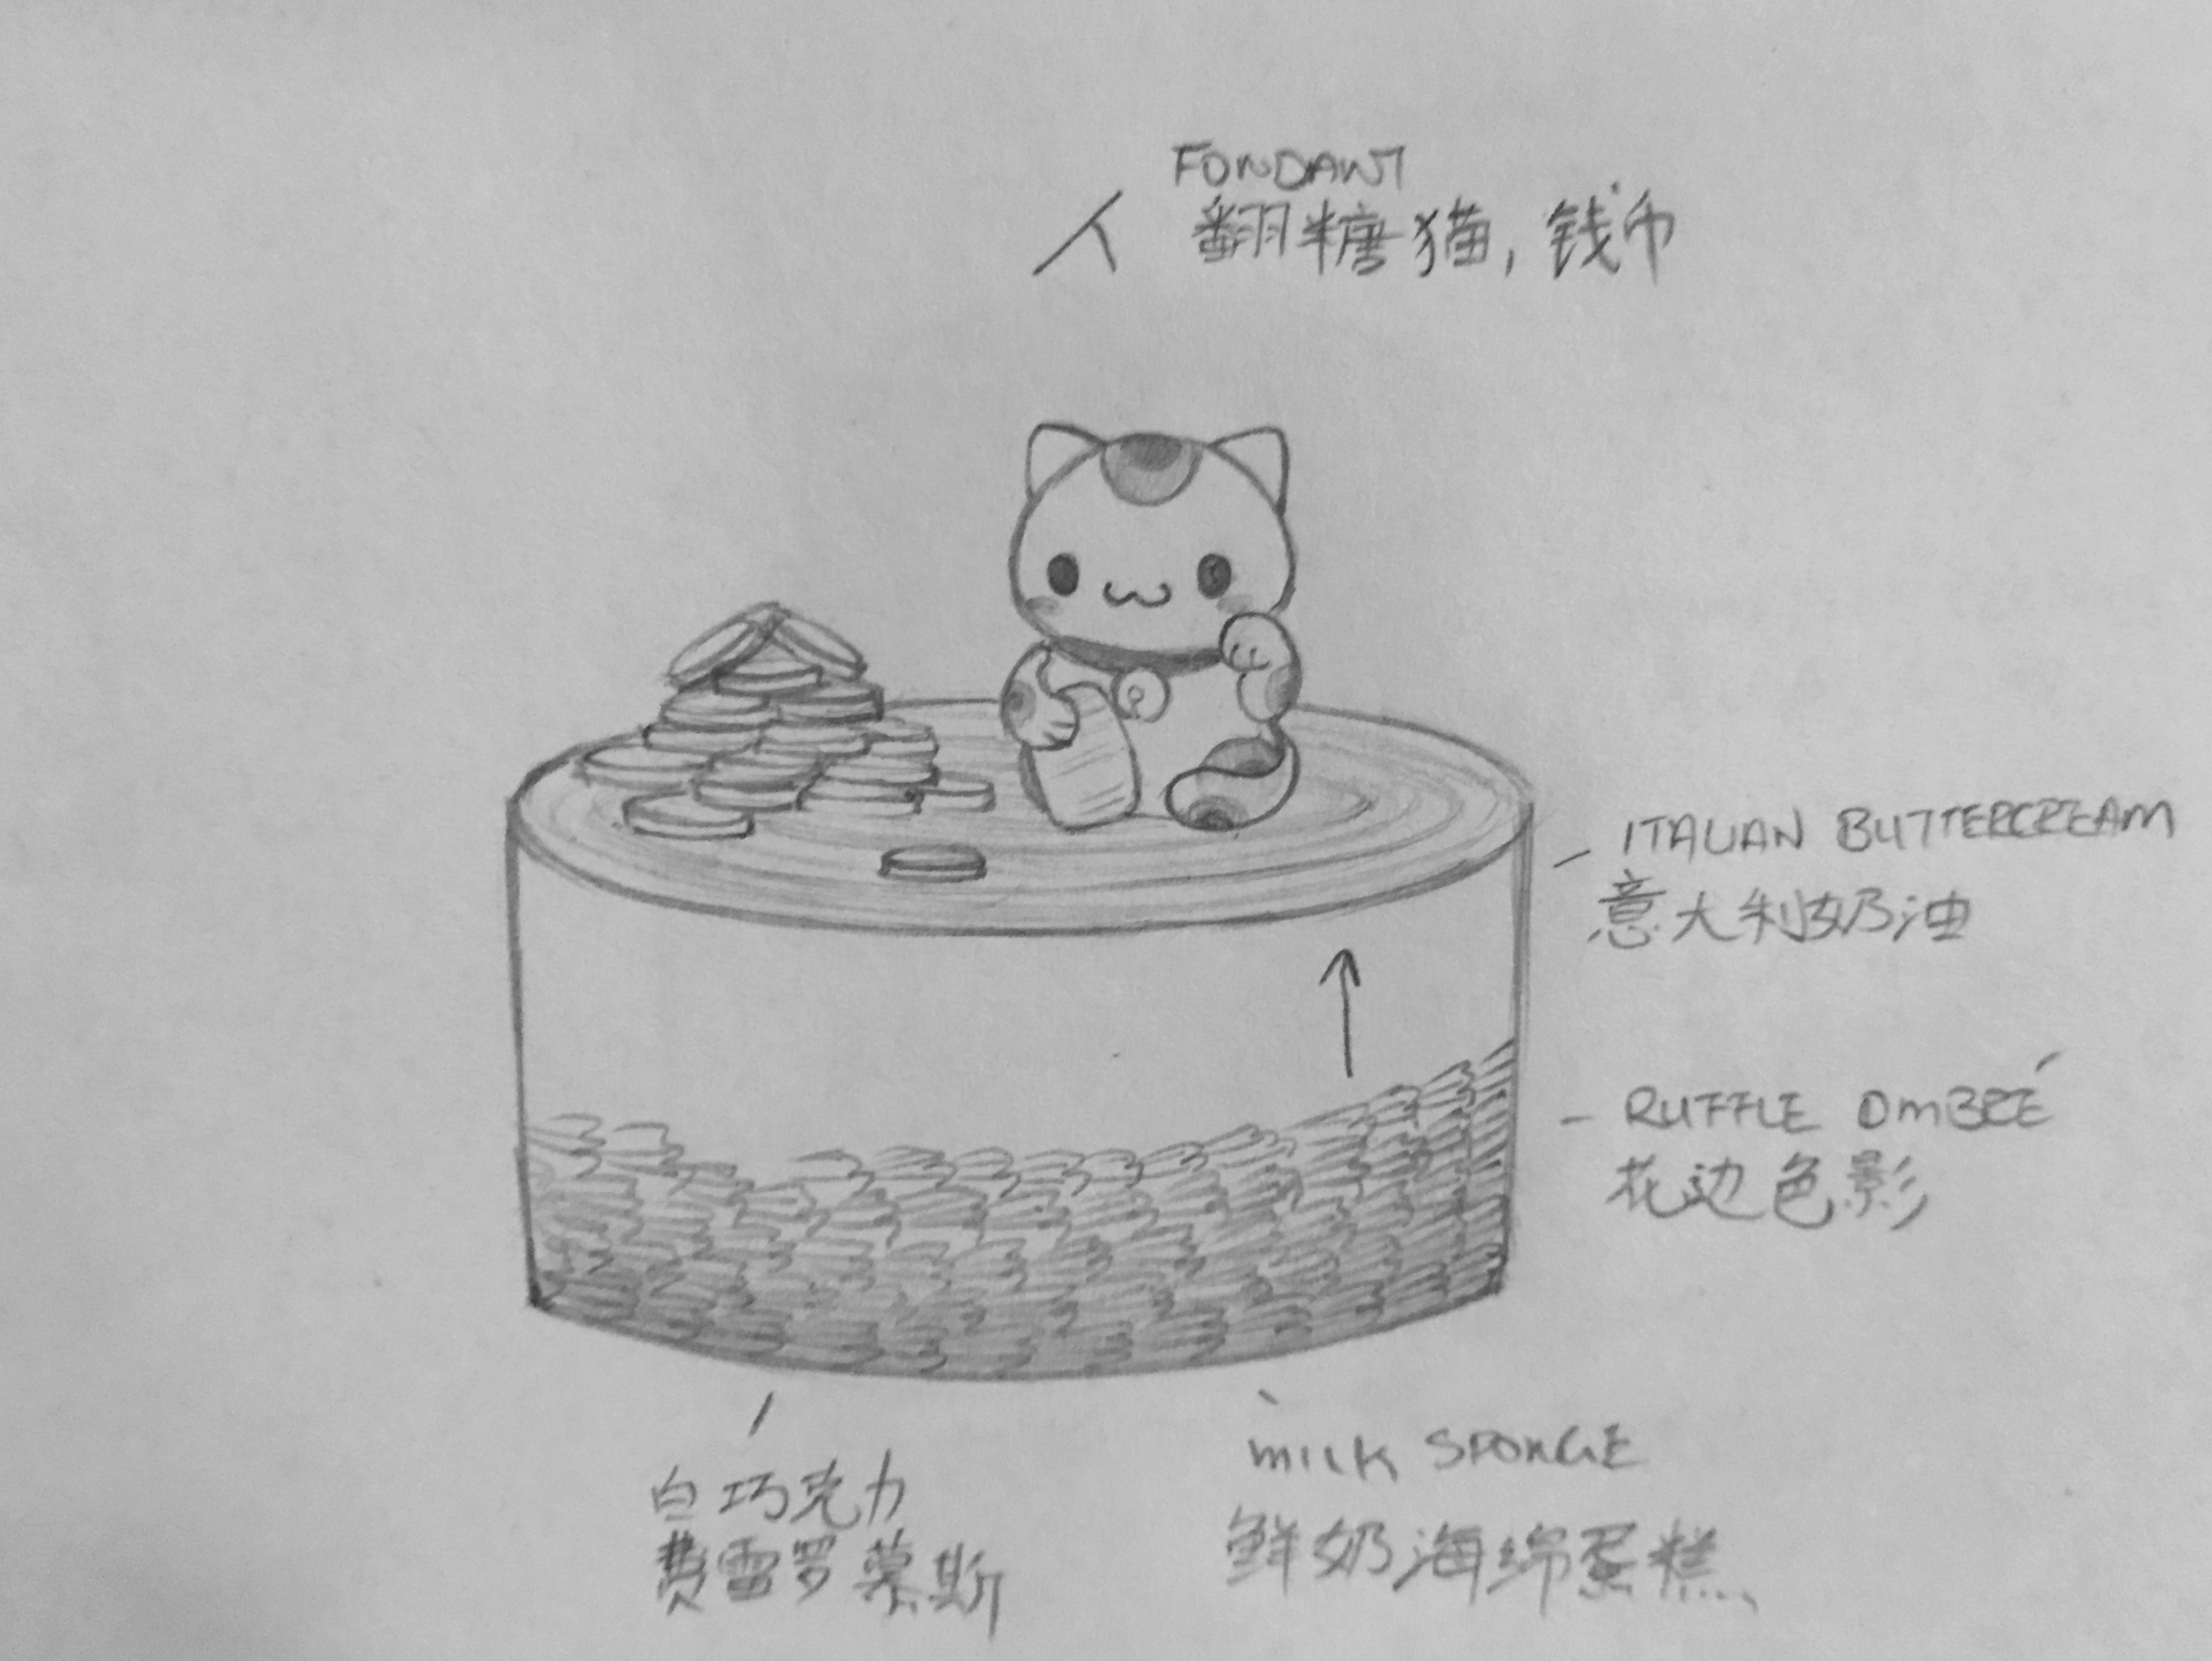 FONDANT
翻糖猫,钱币
ITALIAN BUTTERCREAM
意大利奶油
RUFFLE OMBRÉ
花边色影
白巧克力
费雷罗慕斯
MILK SPONGE
鲜奶海绵蛋糕